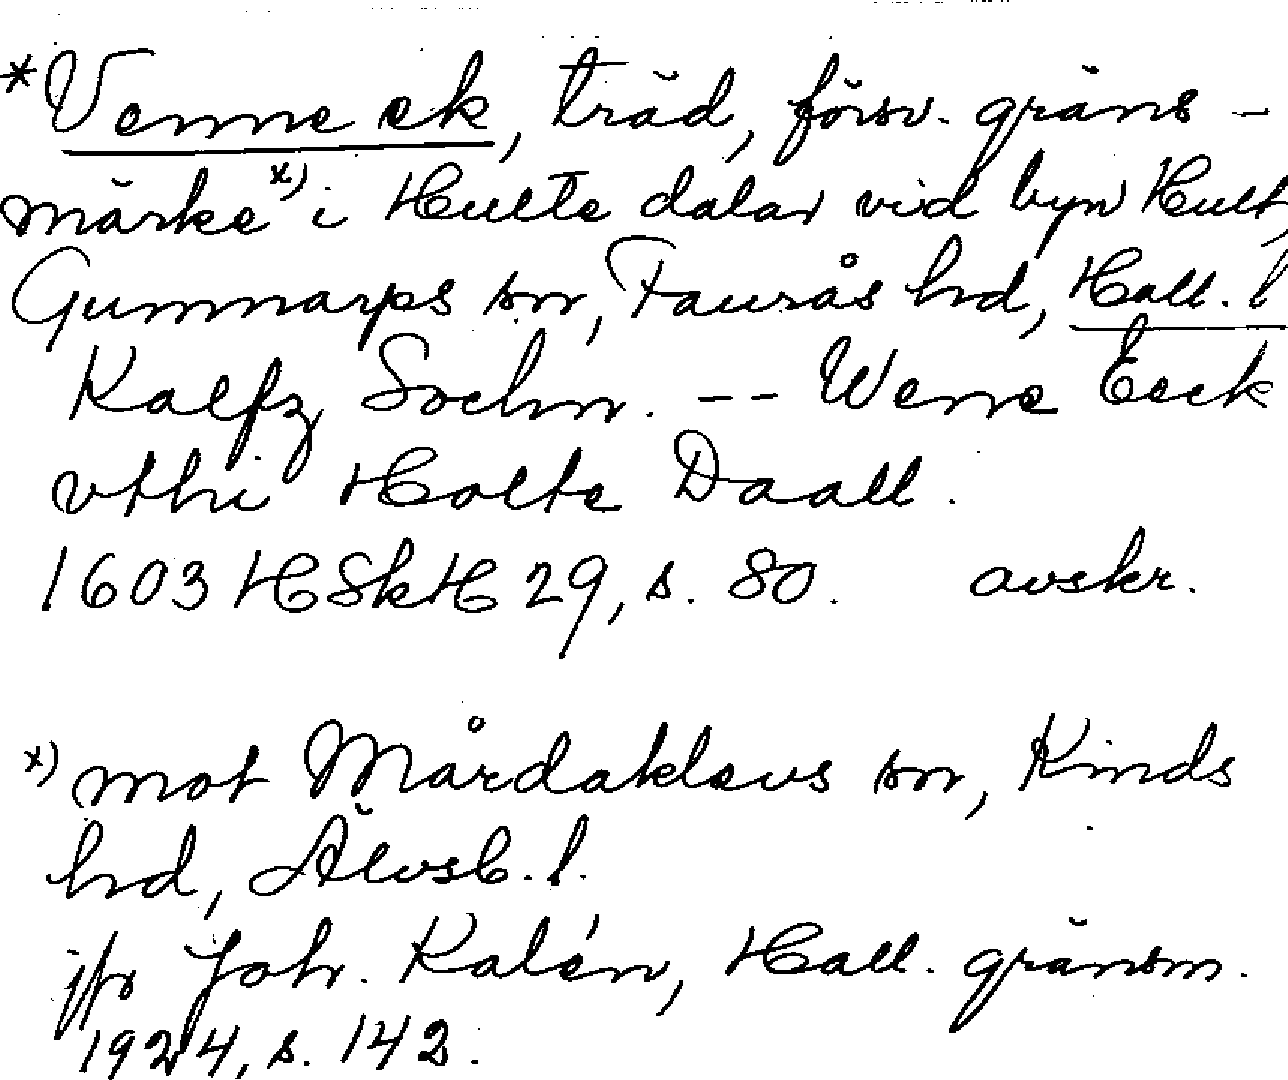 *Venne ek, träd, försv. gräns-
märke x) i Hulte dalar vid byn Hult,
Gunnarps sn, Faurås hd, Hall. l
Kalfz Sochn. -- Wenne Eeck
vthi Holte Daall.
1603 HSkH 29, s. 80. avskr.
x) mot Mårdaklevs sn, Kinds
hd, Älvsb. l.
jfr Joh. Kalén, Hall. gränsm.
1924, s. 142.